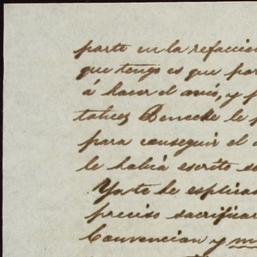 parte en la refaccion
que tengo es que por
á hacer el avis, y p
talvez Benecke le p
para conseguir el
le habia escrito s
Yo te lo esplica
preciso sacrificar
Convencion y m